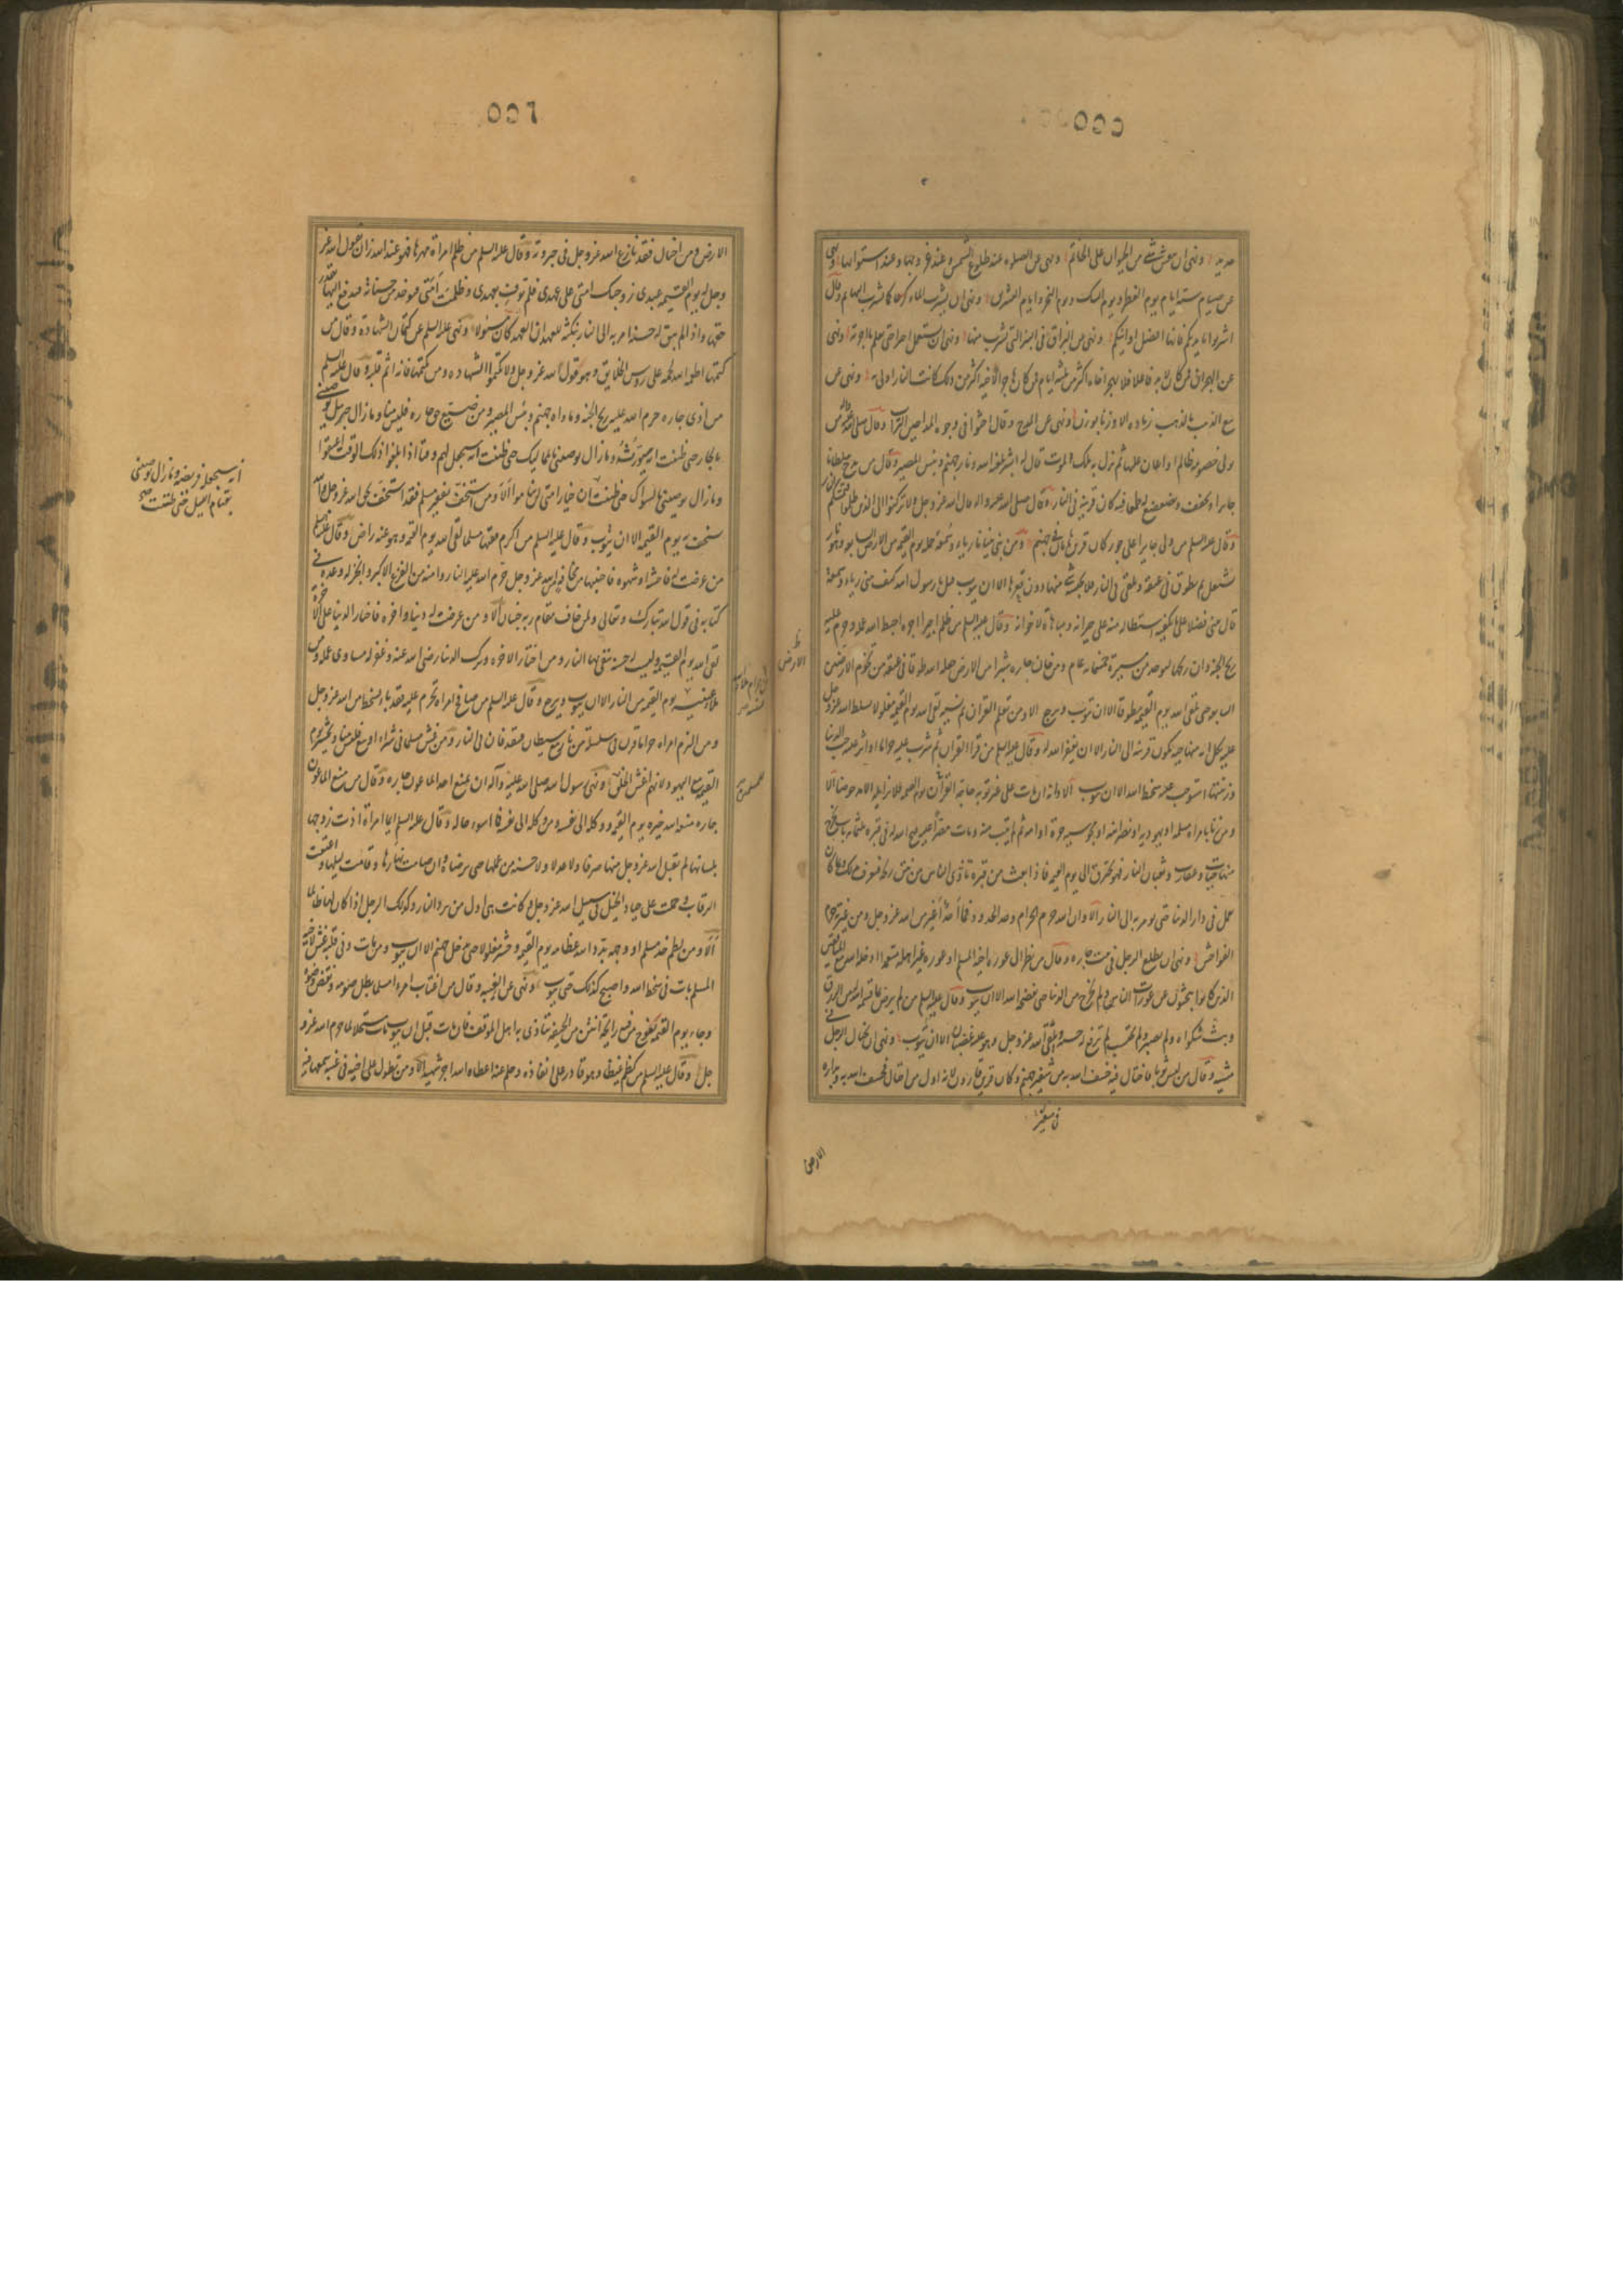 حديد ونهى ان ينقش شئ من الحيوان على الخاتم ونهى عن الصلوه عند طلوع الشمس وعند غروبها وعند استوائها ونهى
عن صيام ستة ايام يوم الفطر ويوم الشك ويوم النحر وايام التشريق ونهى ان يشرب الماء كرعا كما تشرب البهائم وقال
اشربوا بايديكم فانها افضل اوانيكم ونهى عن البزاق في البئر التي تشرب منها ونهى ان يستعمل اجير حتى يعلم ما اجرته ونهى
عن الهجران فمن كان لا بد فاعلا فلا يهجر اخاه اكثر من ثلثه ايام فمن كان مهاجرا لاخيه اكثر من ذلك كانت النار اولى به ونهى عن
بيع الذهب بالذهب زياده الا وزنا بوزن ونهى عن المدح وقال احثوا في وجوه المداحين التراب وقال صلى الله عليه واله من
تولى خصومة ظالم او اعان عليها ثم نزل به ملك الموت قال له ابشر بلعنة الله ونار جهنم وبئس المصير وقال من مدح سلطانا
جايرا او تخفف وتضعضع له طمعا فيه كان قرينه في النار وقال صلى الله عليه واله قال الله عز وجل ولا تركنوا الى الذين ظلموا فتمسكم النار
وقال عليه السلم من ولى جايرا على جور كان قرين هامان في جهنم ومن بنى بنيانا رياء وسمعة حمله يوم القيمه من الارض السابعه وهو نار
تشتعل ثم يطوق في عنقه ويلقى في النار فلا يحبسه شئ منها دون قعرها الا ان يتوب قيل يا رسول الله كيف يبنى رياء وسمعة
قال يبنى فضلا على ما يكفيه استطالة منه على جيرانه ومباهاة لاخوانه وقال عليه السلم من ظلم اجيرا اجره احبط الله عمله وحرم عليه
ريح الجنه وان ريحها ليوجد من مسيرة خمسمائه عام ومن خان جاره شبرا من الارض جعله الله طوقا في عنقه من تخوم الارضين
السابعه حتى يلقى الله يوم القيمه مطوقا الا ان يتوب ويرجع الا ومن تعلم القران ثم نسيه لقى الله يوم القيمه مغلولا يسلط الله عز وجل
عليه بكل ايه منها حية تكون قرينه الى النار الا ان يغفر الله له وقال عليه السلم من قرا القران ثم شرب عليه حراما او اثر عليه حب الدنيا
وزينتها استوجب عليه سخط الله الا ان يتوب الا وانه ان مات على غير توبه حاجه القران يوم القيمه فلا يزايله الا مدحوضا الا
ومن زنا بامراه مسلمه او يهوديه او نصرانيه او مجوسيه حرة او امة ثم لم يتب منه ومات مصرا عليه فتح الله له في قبره ثلثمائه باب تخرج
منها حيات وعقارب وثعبان النار فهو يحترق الى يوم القيمه فاذا بعث من قبره تاذى الناس من نتن ريحه فيعرف بذلك وبما كان
يعمل في دار الدنيا حتى يومر به الى النار الا وان الله حرم الحرام وحد الحدود فما احد اغير من الله عز وجل ومن غيرته حرم
الفواحش ونهى ان يطلع الرجل في بيت جاره وقال من نظر الى عورة اخيه المسلم او عورة غير اهله متعمدا ادخله الله مع المنافقين
الذين كانوا يبحثون عن عورات الناس ولم يخرج من الدنيا حتى يفضحه الله الا ان يتوب وقال عليه السلم من لم يرض بما قسم الله له من الرزق
وبث شكواه ولم يصبر ولم يحتسب لم ترفع له حسنه ويلقى الله عز وجل وهو عليه غضبان الا ان يتوب ونهى ان يختال الرجل في
مشيه وقال من لبس ثوبا فاختال فيه خسف الله به من شفير جهنم وكان قرين قارون لانه اول من اختال فخسف الله به وبداره
الارض
الارض ومن اختال فقد نازع الله عز وجل في جبروته وقال عليه السلم من ظلم امراة مهرها فهو عند الله زان يقول الله عز
وجل له يوم القيمه عبدي زوجتك امتي على عهدي فلم توف بعهدي وظلمت امتي فيوخذ من حسناته فيدفع اليها بقدر
حقها واذا لم يبق له حسنة امر به الى النار بنكثه للعهد ان العهد كان مسئولا ونهى عليه السلم عن كتمان الشهادة وقال من
كتمها اطعمه الله لحمه على روس الخلايق وهو قول الله عز وجل ولا تكتموا الشهاده ومن يكتمها فانه اثم قلبه وقال عليه السلم
من اذى جاره حرم الله عليه ريح الجنه وماواه جهنم وبئس المصير ومن ضيع حق جاره فليس منا وما زال جبرئيل يوصيني
بالجار حتى ظننت انه سيورثه وما زال يوصيني بالمماليك حتى ظننت انه سيجعل لهم وقتا اذا بلغوا ذلك الوقت اعتقوا
وما زال يوصيني بالسواك حتى ظننت ان خيار امتي لن يناموا الا ومن استخف بفقير مسلم فقد استخف بحق الله عز وجل والله
يستخف به يوم القيمه الا ان يتوب وقال عليه السلم من اكرم فقيرا مسلما لقى الله يوم القيمه وهو عنه راض وقال عليه السلم
من عرضت له فاحشه او شهوه فاجتنبها مخافة الله عز وجل حرم الله عليه النار وامنه من الفزع الاكبر وانجز له وعده في
كتابه في قول الله تبارك وتعالى ولمن خاف مقام ربه جنتان الا ومن عرضت له دنيا واخره فاختار الدنيا على الاخرة
لقى الله يوم القيمه وليست له حسنة يتقى بها النار ومن اختار الاخره وترك الدنيا رضى الله عنه وغفر له مساوى عمله ومن
ملا عينيه يوم القيمه من النار الا ان يتوب ويرجع وقال عليه السلم من صافح امراه تحرم عليه فقد باء بسخط من الله عز وجل
ومن التزم امراه حراما قرن في سلسلة من نار مع شيطان فيقذفان في النار ومن غش مسلما في شراء او بيع فليس منا ويحشر يوم
القيمه مع اليهود لانهم اغش الخلق ونهى رسول الله صلى الله عليه وآله ان يمنع احد الماعون جاره وقال من منع الماعون
جاره منعه الله خيره يوم القيمه ووكله الى نفسه ومن وكله الى نفسه فما اسوء حاله وقال عليه السلم ايما امراة اذت زوجها
بلسانها لم يقبل الله عز وجل منها صرفا ولا عدلا ولا حسنه من عملها حتى ترضيه وان صامت نهارها وقامت ليلها واعتقت
الرقاب وحملت على جياد الخيل في سبيل الله عز وجل وكانت في اول من يرد النار وكذلك الرجل اذا كان لها ظالما
الا ومن لطم خد مسلم او وجهه بدد الله عظامه يوم القيمه وحشر مغلولا حتى يدخل جهنم الا ان يتوب ومن بات وفي قلبه غش لاخيه
المسلم بات في سخط الله واصبح كذلك حتى يتوب ونهى عن الغيبه وقال من اغتاب امرءا مسلما بطل صومه ونقض وضوءه
وجاء يوم القيمه تفوح من فيه رايحة انتن من الجيفه يتاذى به اهل الموقف فان مات قبل ان يتوب مات مستحلا لما حرم الله عز و
جل وقال عليه السلم من كظم غيظا وهو قادر على انفاذه وحلم عنه اعطاه الله اجر شهيد الا ومن تطول على اخيه في غيبة سمعها فيه
انه سيجعله فريضه وما زال يوصيني
بقيام الليل حتى ظننت